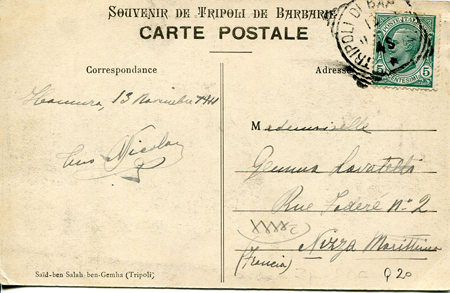 SOUVENIR DE TRIPOLI DE BARBARIE
CARTE POSTALE
TRIPOLI DI BAR
POSTE ITALIANE
5 CENTESIMI 5
Correspondance
Adresse
13 Novembre 1911
Nicolay
Mademoiselle
Gemma Lavatelli
Rue Foderé Nº 2
Nizza Marittima
(Francia)
Q 20
Saïd-ben Salah ben-Gemha (Tripoli)